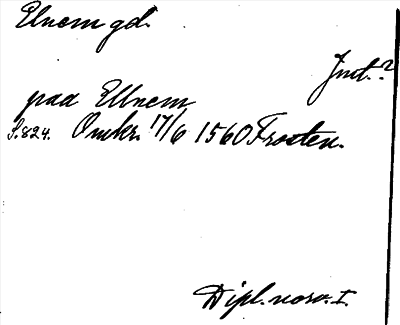 Elnem gd.
Jnt.?
paa Ellnem
S. 824. Omkr. 17/6 1560 Frosten.
Dipl. norv. I.